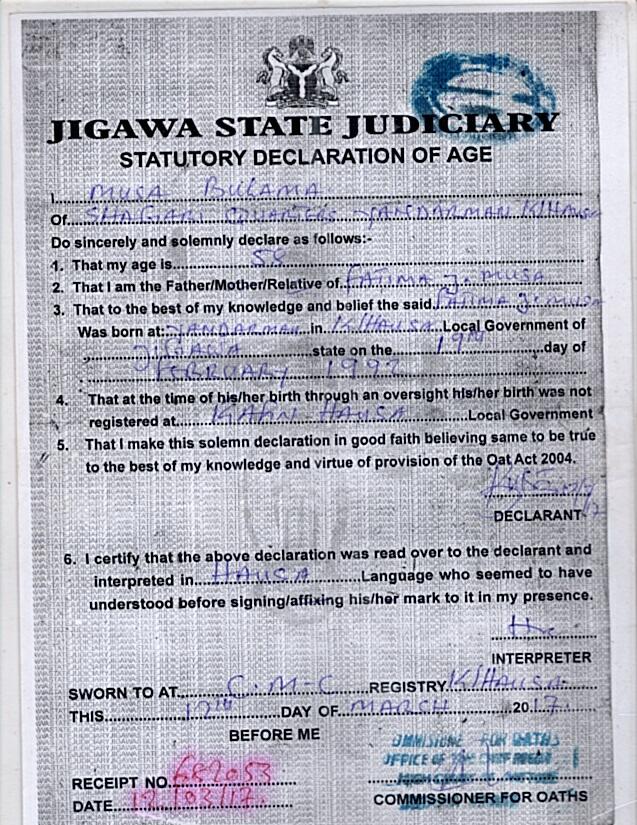 JIGAWA STATE JUDICIARY
STATUTORY DECLARATION OF AGE
I MUSA BULAMA
Of SHAGARI QUARTERS JANDARMAN K/HAUSA
Do sincerely and solemnly declare as follows:-
1. That my age is 58
2. That I am the Father/Mother/Relative of FATIMA J. MUSA
3. That to the best of my knowledge and belief the said FATIMA J. MUSA
Was born at: JANDARMAN in K/HAUSA Local Government of
JIGAWA state on the 19TH day of
FEBRUARY 1992
4. That at the time of his/her birth through an oversight his/her birth was not
registered at KAFIN HAUSA Local Government
5. That I make this solemn declaration in good faith believing same to be true
to the best of my knowledge and virtue of provision of the Oat Act 2004.
DECLARANT
6. I certify that the above declaration was read over to the declarant and
interpreted in HAUSA Language who seemed to have
understood before signing/affixing his/her mark to it in my presence.
INTERPRETER
SWORN TO AT C-M-C REGISTRY K/HAUSA
THIS 12TH DAY OF MARCH 2017
BEFORE ME
RECEIPT NO. 682053
DATE 12/03/17
COMMISSIONER FOR OATHS